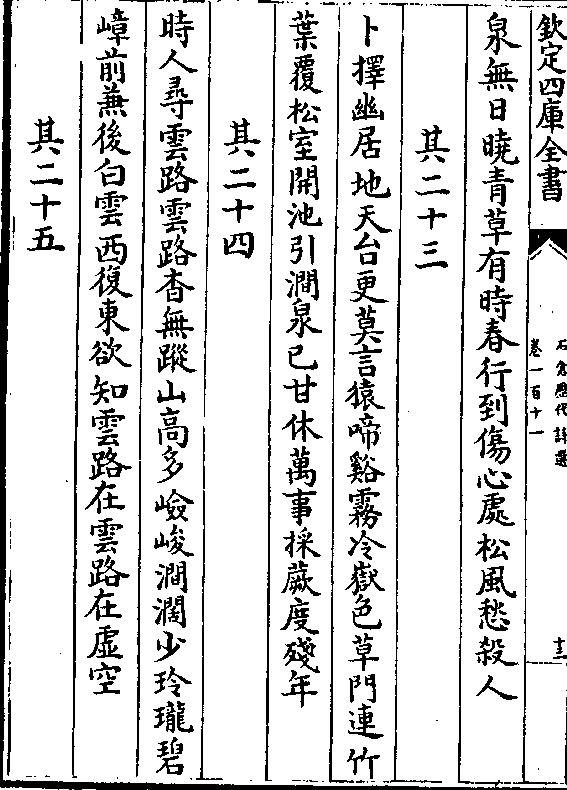 欽定四庫全書
石倉歷代詩選
卷一百十一
泉無日曉青草有時春行到傷心處松風愁殺人
其二十三
卜擇幽居地天台更莫言猿啼谿霧冷嶽色草門連竹
葉覆松室開池引澗泉已甘休萬事採蕨度殘年
其二十四
時人尋雲路雲路杳無蹤山高多嶮峻澗濶少玲瓏碧
嶂前兼後白雲西復東欲知雲路在雲路在虚空
其二十五